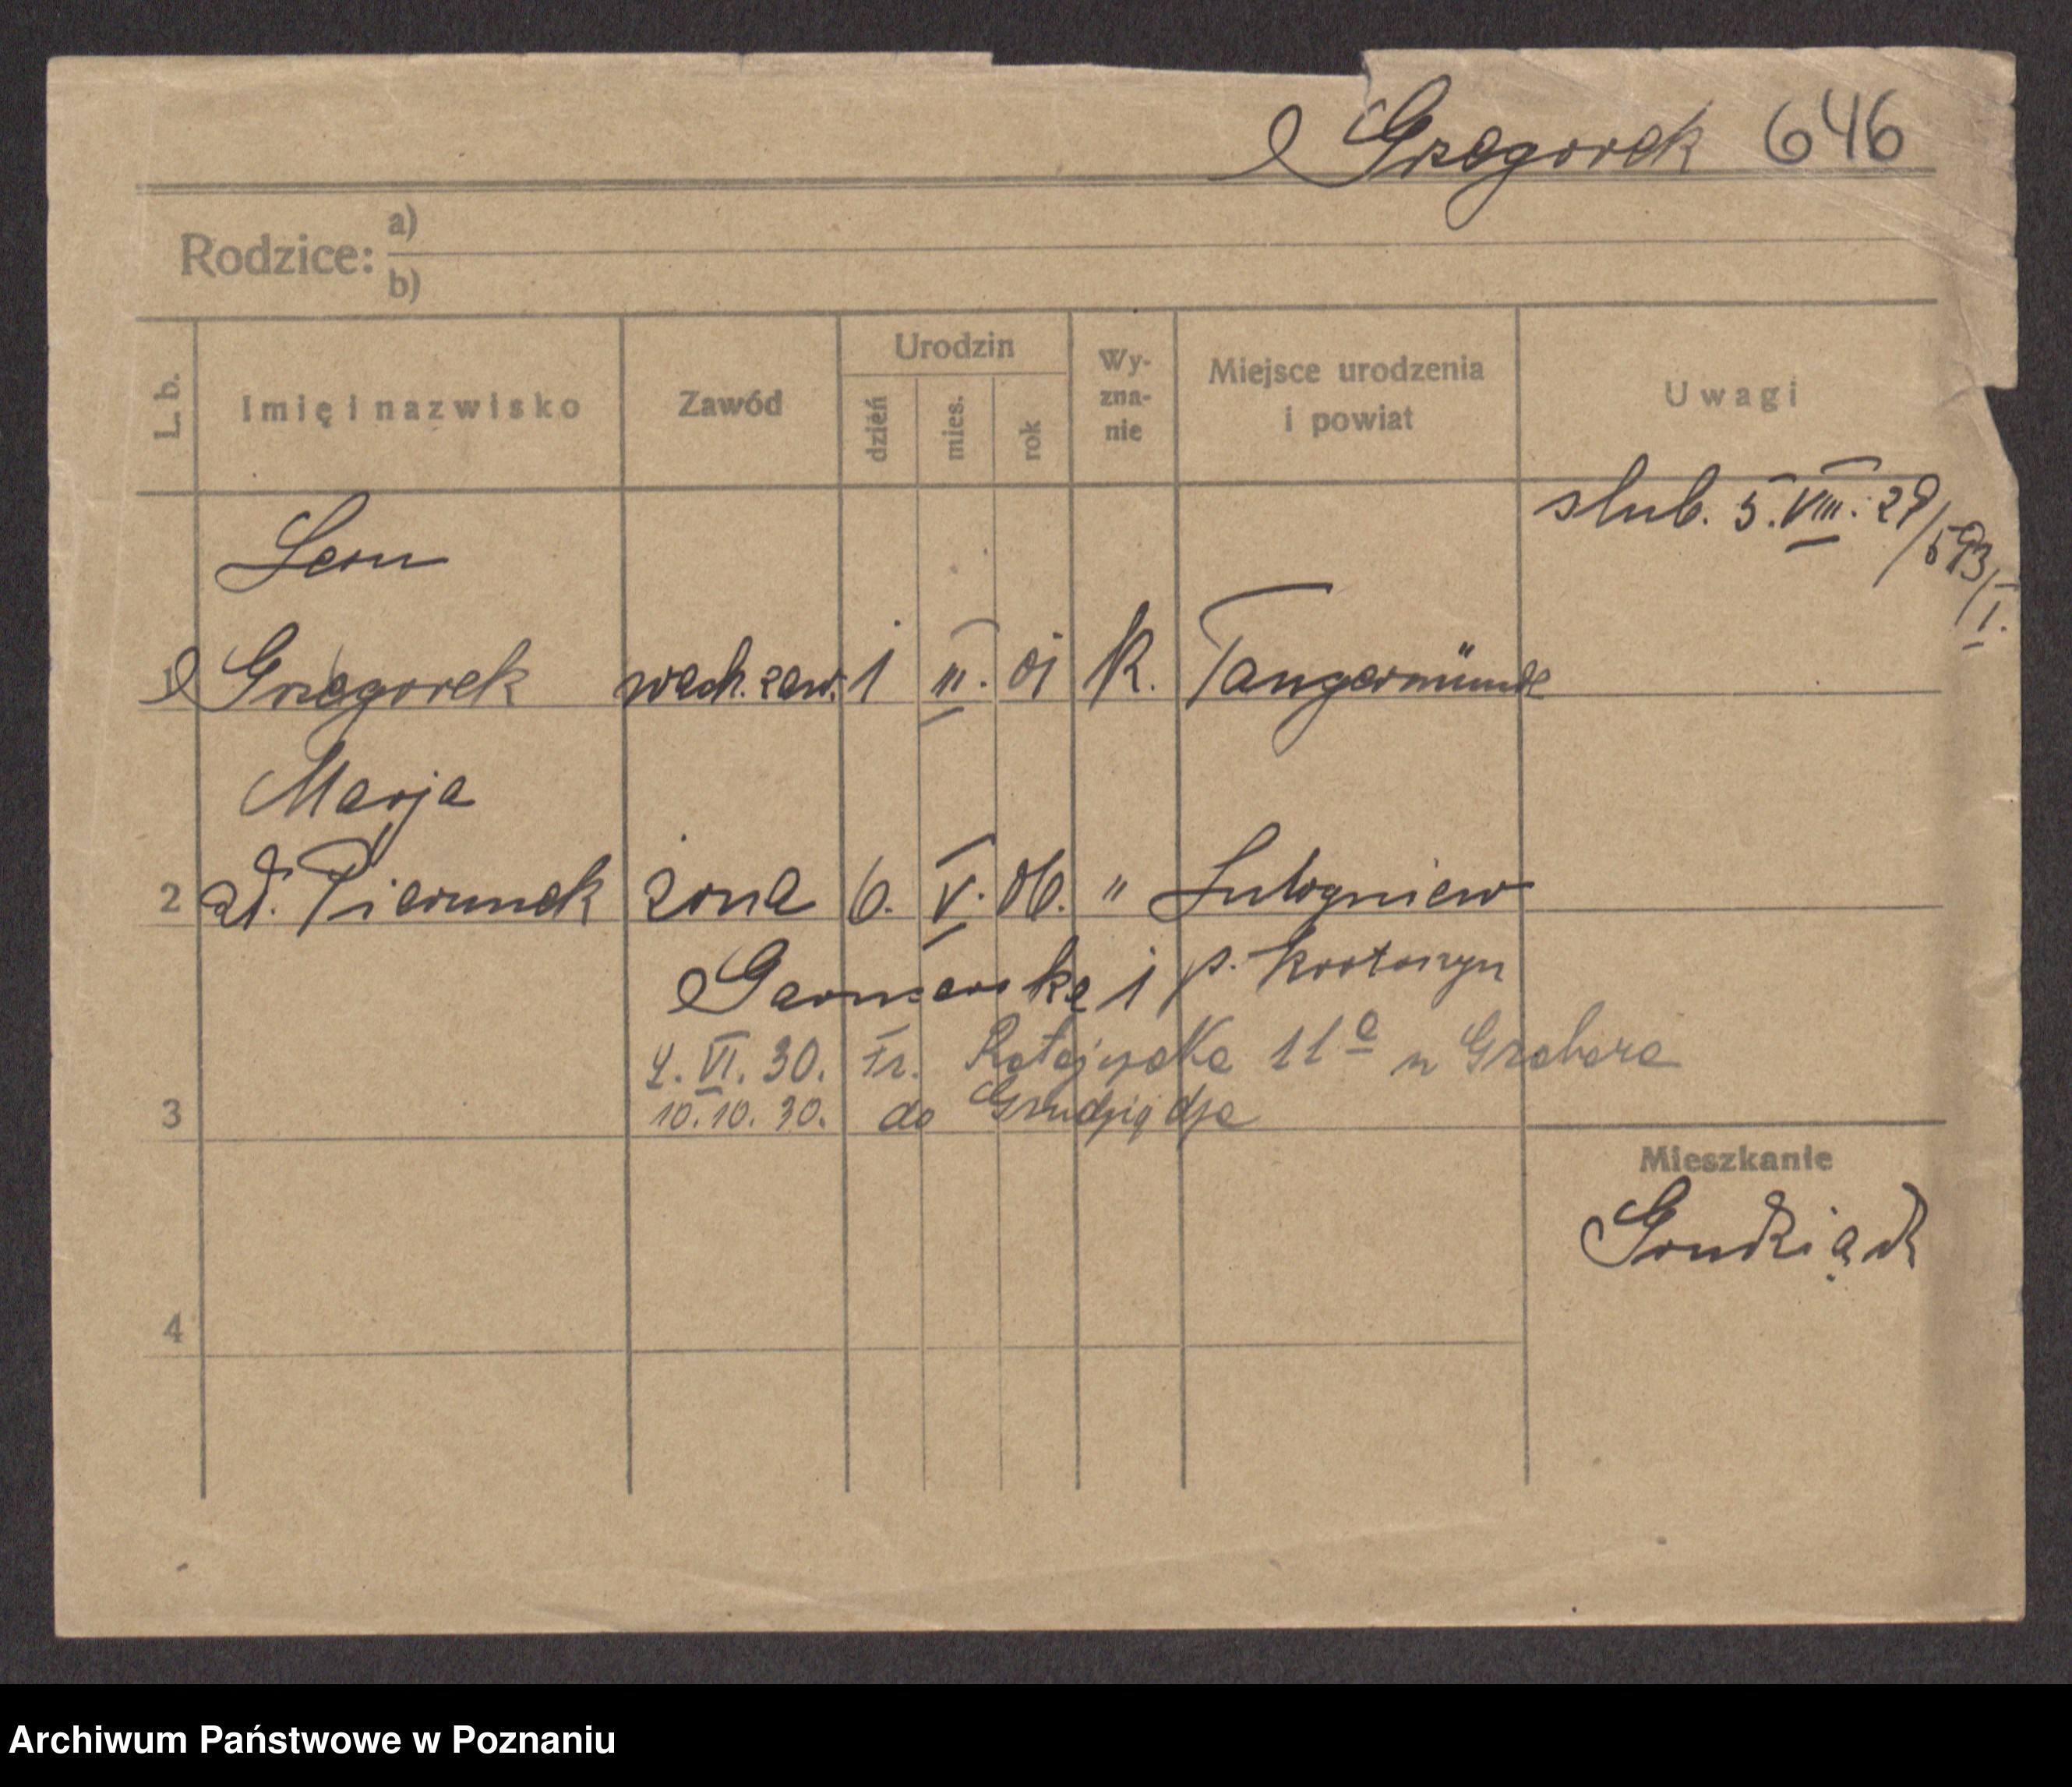 Grzegorek 646
Rodzice: a)
b)
L. b.
Imię i nazwisko
Zawód
Urodzin
dzień
mies.
rok
Wy-
zna-
nie
Miejsce urodzenia
i powiat
Uwagi
ślub. 5. VIII. 29/593/I.
Leon
1 Grzegorek wach. zaw. 1 III. 01 K. Tangermünde
Marja
2 zd. Pierunek żona 6. V. 06. " Lutogniew
Garncarska 1 p. Krotoszyn
4. VI. 30. Fr. Ratajczaka 11a u Grabara
3 10. 10. 30. do Grudziądza
Mieszkanie
Grudziądz
4
Archiwum Państwowe w Poznaniu